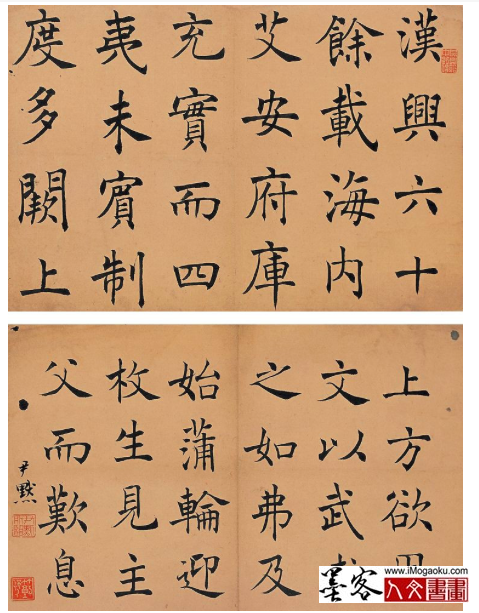 漢興六十
餘載海内
艾安府庫
充實而四
夷未賓制
度多闕上
上方欲
文以武
之如弗及
始蒲輪迎
枚生見主
父而歎息
尹默
www.iMogaoku.com
墨客人文書畫